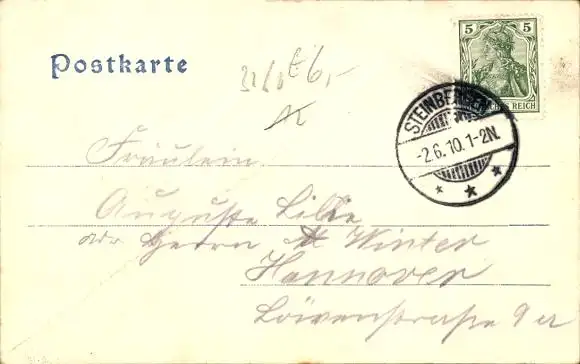 Postkarte
5 5
DEUTSCHES REICH
STEINBERGEN
-2.6.10.1-2N.
6,-
Fräulein
Auguste Lillie
adr Herrn Winter
Hannover
Löwenstraße 9